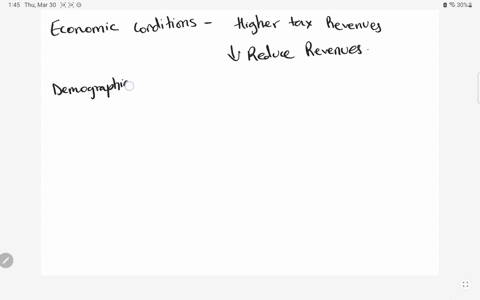 1:45 Thu, Mar 30 30%
Economic Conditions - Higher tax Revenues
↓ Reduce Revenues.
Demographi